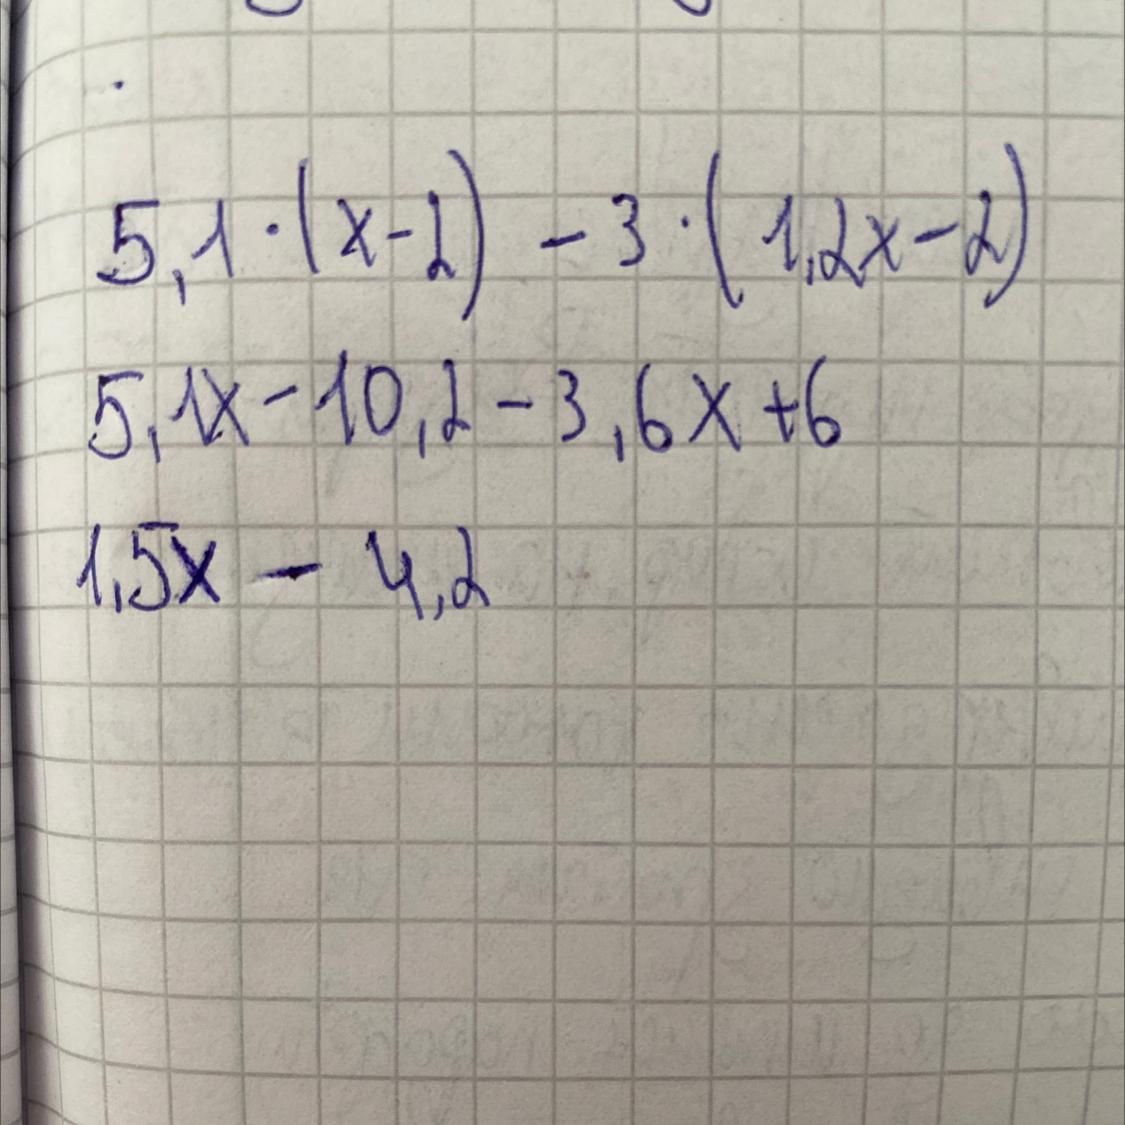 5,1·(x-2) - 3·(1,2x-2)
5,1x - 10,2 - 3,6x +6
1,5x - 4,2